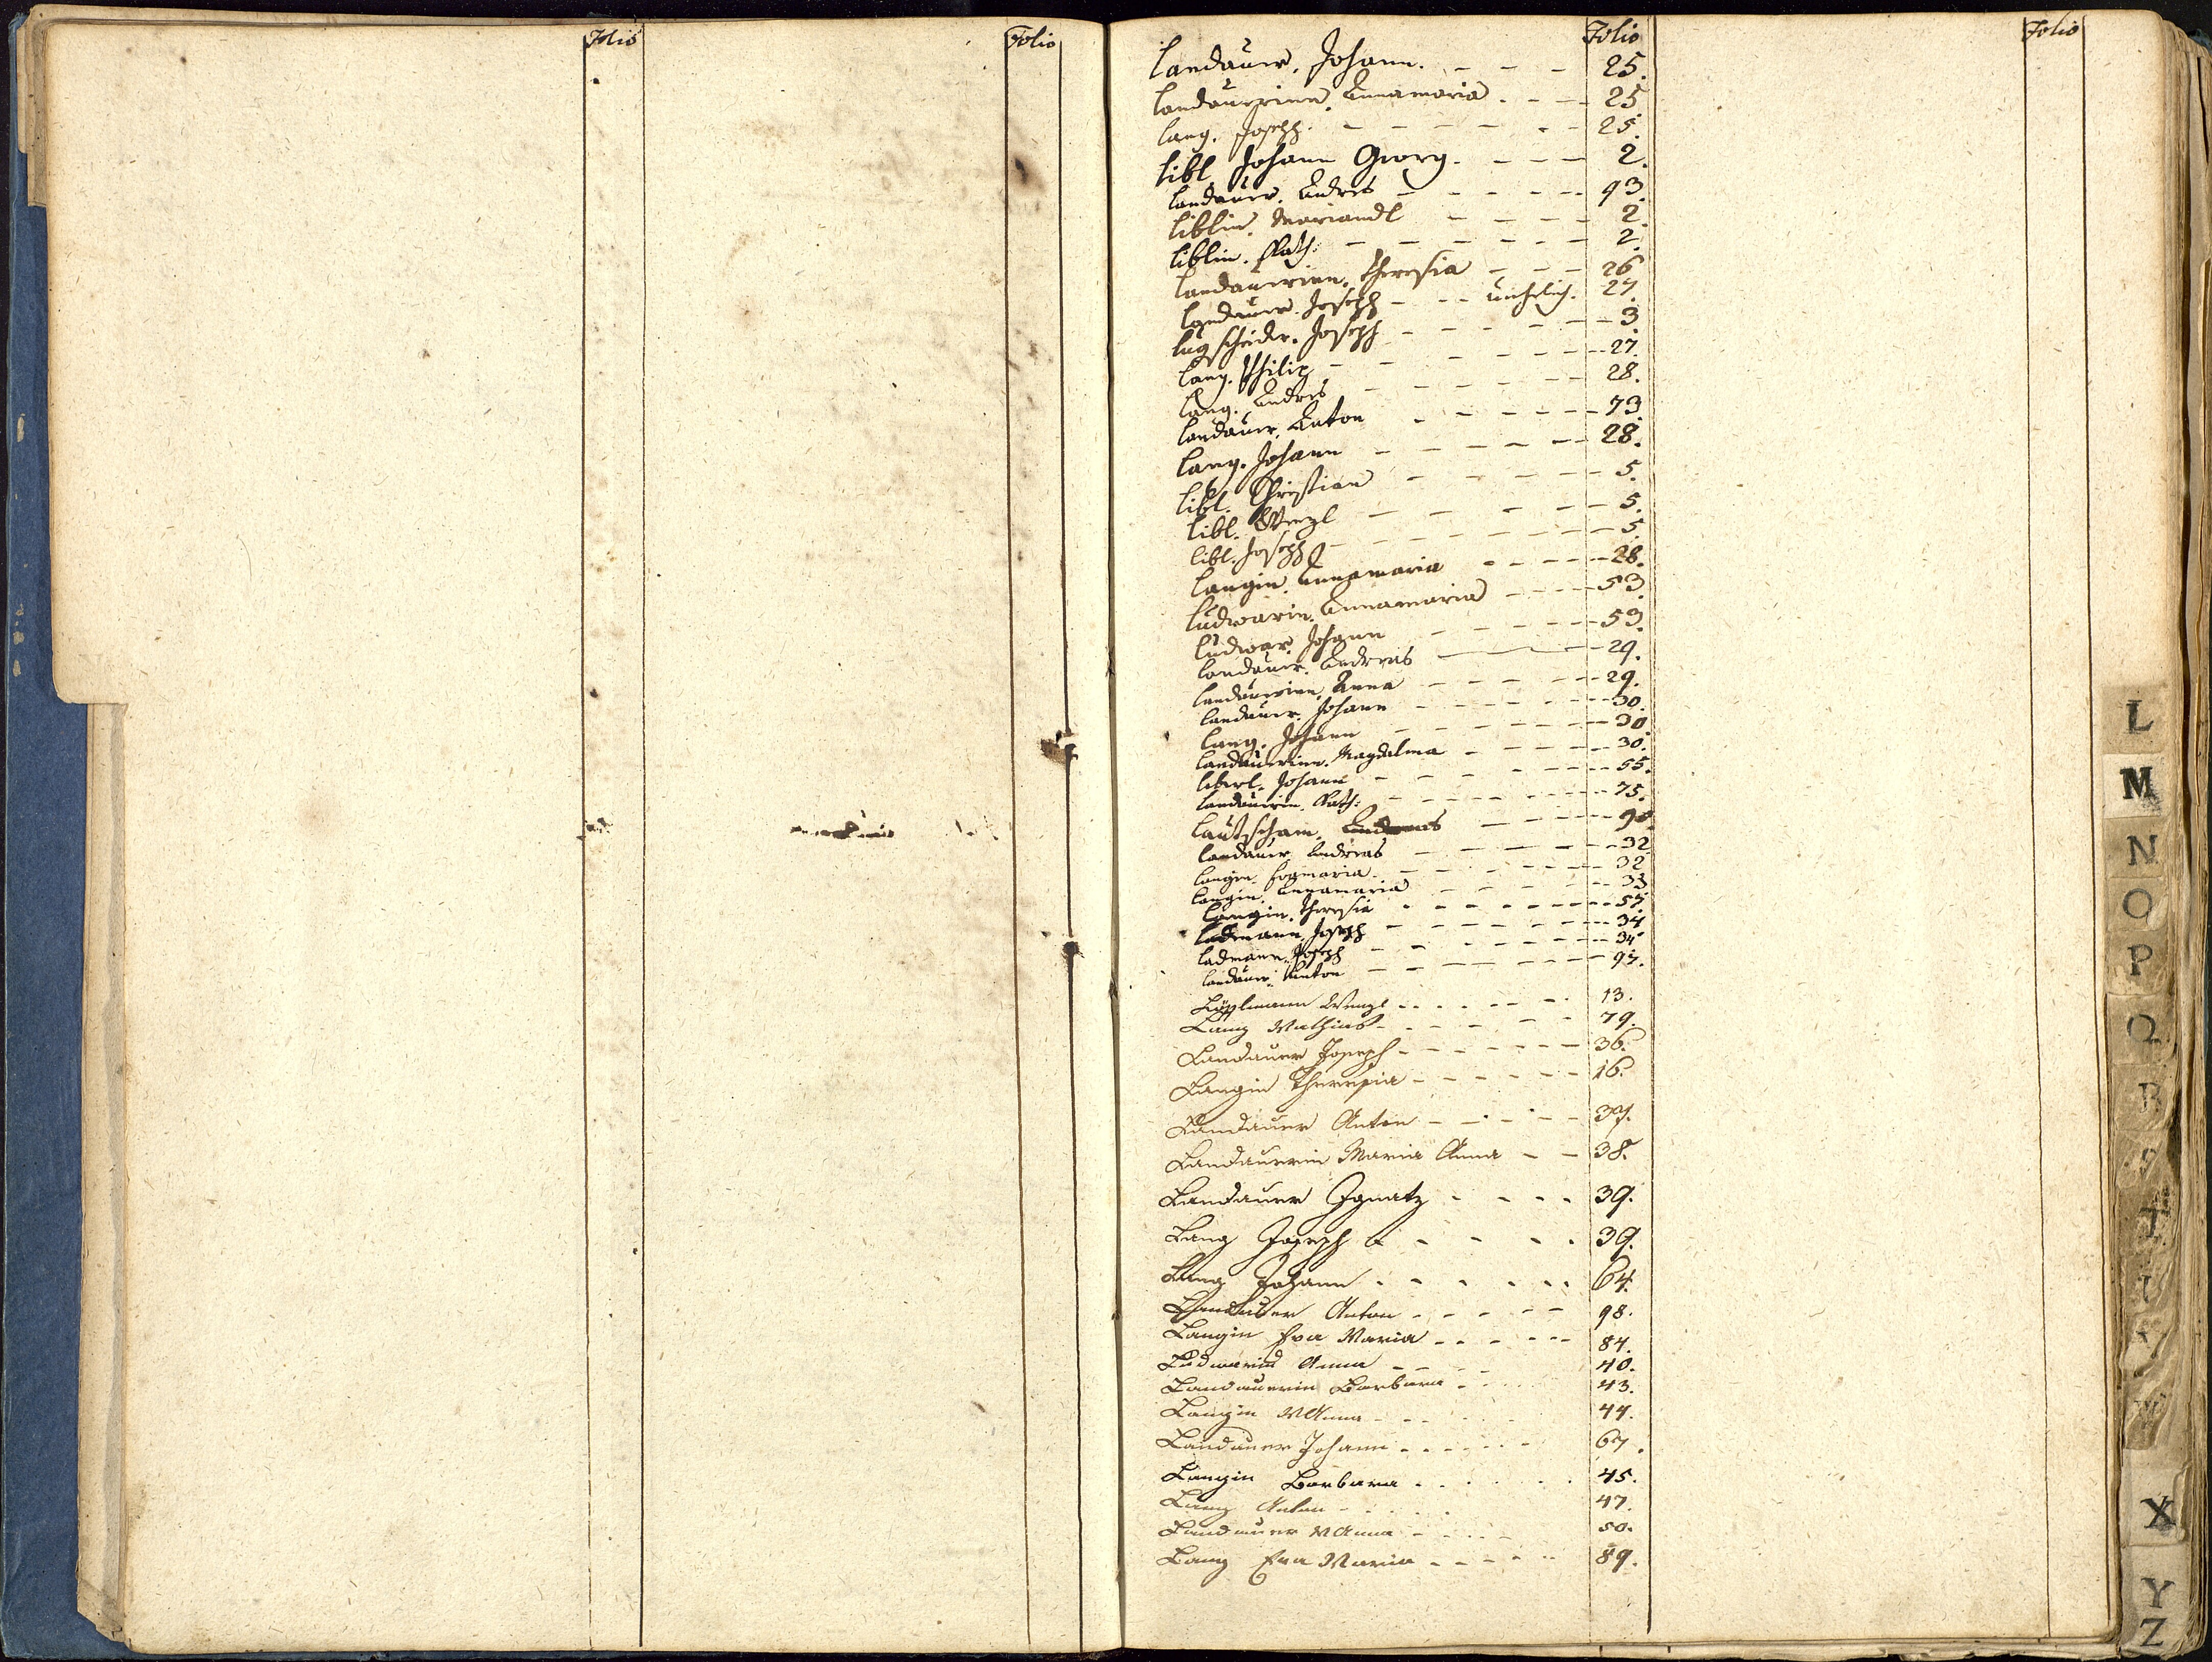 Folio
Folio
Folio
Folio
Landauer, Johann. - - - 25.
Landauerinn, Annamaria. - - - 25
Lang. Joseph. - - - - - - 25.
Libl Johann Georg. - - - 2.
Landauer. Andres - - - - - 93.
Liblin. Mariandl - - - - 2
Liblin. Kath: - - - - - - 2.
Landauerinn, Theresia - - - 26
Landauer. Joseph - - - unehelich. 27.
Lugscheider. Joseph - - - - - 3.
Lang. Philip - - - - - - 27.
Lang. Andres - - - - - 28.
Landauer. Anton - - - - - 73.
Lang. Johann - - - - - 28.
Libl. Christian - - - - - 5.
Libl. Wenzl - - - - - 5.
Libl. Joseph - - - - - - 5.
Langin. Annamaria - - - - - 28.
Ludwarin. Annamaria - - - - 53.
Ludwar. Johann - - - - - 53.
Landauer. Andreas - - - 29.
Landauerinn, Anna - - - - - 29.
Landauer. Johann - - - - - 30.
Lang. Johann - - - - - - 30
Landauerinn. Magdalena - - - - 30.
Liberl. Johann - - - - - - 55.
Landauerin. Kath: - - - - - 75.
Lautscham. - - - -
Landauer Andreas - - - - - 32
Langin. Evamaria. - - - - - 32
Langin. Annamaria - - - - - 33
Langin. Theresia - - - - - - 57.
Ladmann Joseph - - - - - - 34
Ladmann. Joseph - - - - - - 34
Landauer. Anton - - - - - - 97.
Wenzl - - - - - - 13.
Lang Mathias - - - - - 79.
Landauer Joseph - - - - - - 36.
Langin Theresia - - - - - - 16.
Landauer Anton - - - - - 37.
Landauerin Maria Anna - - 38.
Landauer Ignatz - - - - 39.
Lang Joseph - - - - - 39.
Lang Johann - - - - - - 64.
Landauer Anton - - - - - 98.
Langin Eva Maria - - - - - 84.
Ludwarin Anna - - - - 40.
Landauerin Barbara - - - - 43.
Langin MAnna - - - - - 44.
Landauer Johann - - - - - - 67.
Langin Barbara - - - - - 45.
Lang Anton - - - - - 47.
Landauer MAnna - - - - - 50.
Lang Eva Maria - - - - - 89.
L
M
N
O
P
Q
R
S
T
U
V
W
X
Y
Z